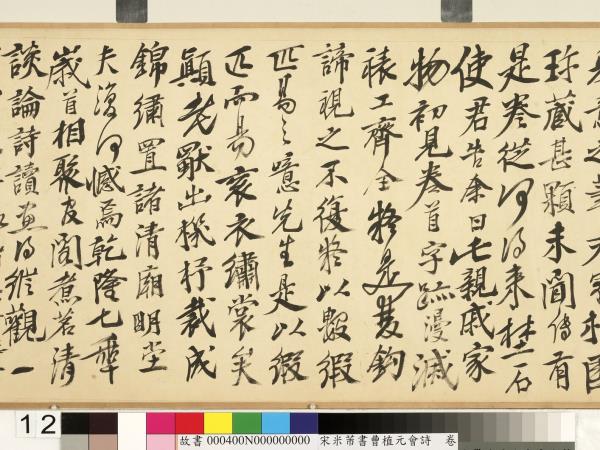 珎藏甚顆未聞傳有
是卷從何得来埜石
使君告余曰此親戚家
物初見卷首字跡漫滅
裱工齊全將是雙鉤
諦視之不復疑以數緞
匹易之噫先生是以緞
匹而易衮衣繡裳矣
顛老獸出機杼裁成
錦繡置諸清廟明堂
夫復何憾焉乾隆七年
歲首相聚友閣煮茗清
談論詩讀畫得縱觀一
12
故書 000400N000000000 宋米芾書曹植元會詩 卷